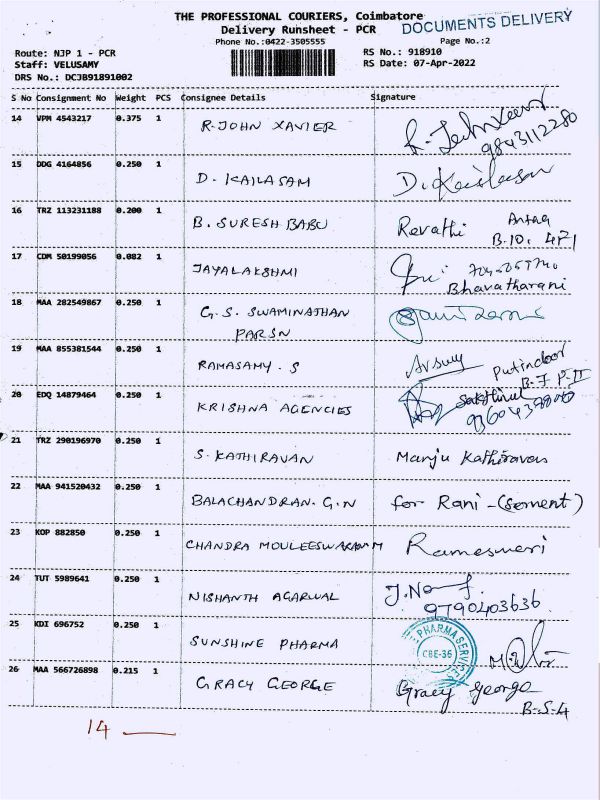 THE PROFESSIONAL COURIERS, Coimbatore
DOCUMENTS DELIVERY
Delivery Runsheet - PCR
Phone No.:0422-3505555
Page No.:2
Route: NJP 1 - PCR
RS No.: 918910
Staff: VELUSAMY
RS Date: 07-Apr-2022
DRS No.: DCJB91891002
S No Consignment No Weight PCS Consignee Details Signature
14 VPM 4543217 0.375 1 R. JOHN XAVIER
9843112280
15 DDG 4164856 0.250 1 D. KAILASAM D. Kailasam
16 TRZ 113231188 0.200 1 B. SURESH BABU Revathi
B.10. 471
17 CDM 50199056 0.082 1 JAYALAKSHMI
Bhavatharani
18 MAA 282549867 0.250 1 G.S. SWAMINATHAN
PARSN
19 MAA 855381544 0.250 1 RAMASAMY. S
20 EDQ 14879464 0.250 1 KRISHNA AGENCIES
21 TRZ 290196970 0.250 1 S. KATHIRAVAN Manju Kathiravan
22 MAA 941520432 0.250 1 BALACHANDRAN. G.N for Rani -
23 KOP 882850 0.250 1 CHANDRA MOULEESWARAN M
24 TUT 5989641 0.250 1 NISHANTH AGARWAL
9790403636
25 KDI 696752 0.250 1 SUNSHINE PHARMA
PHARMA SERVICES
CBE-36
26 MAA 566726898 0.215 1 GRACY GEORGE Gracy George
B-S-4
14